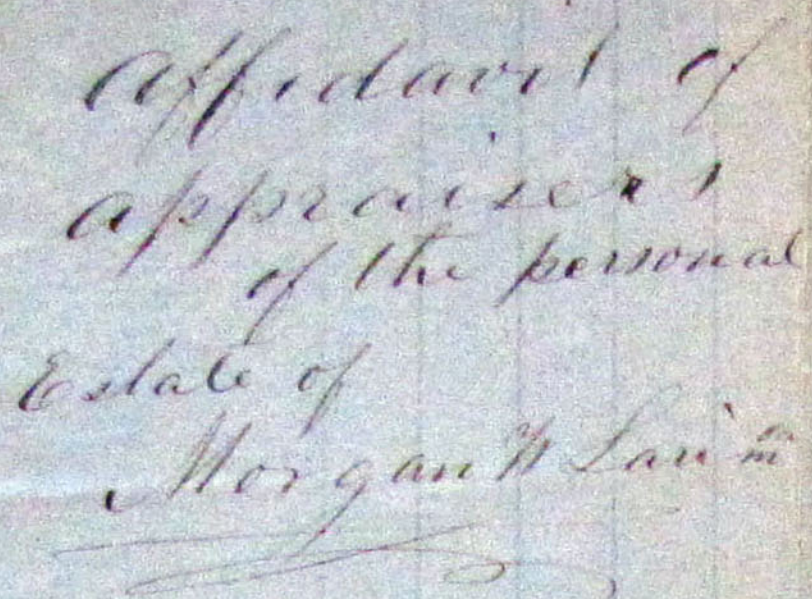 Affidavit of
appraisers
of the personal
Estate of
Morgan